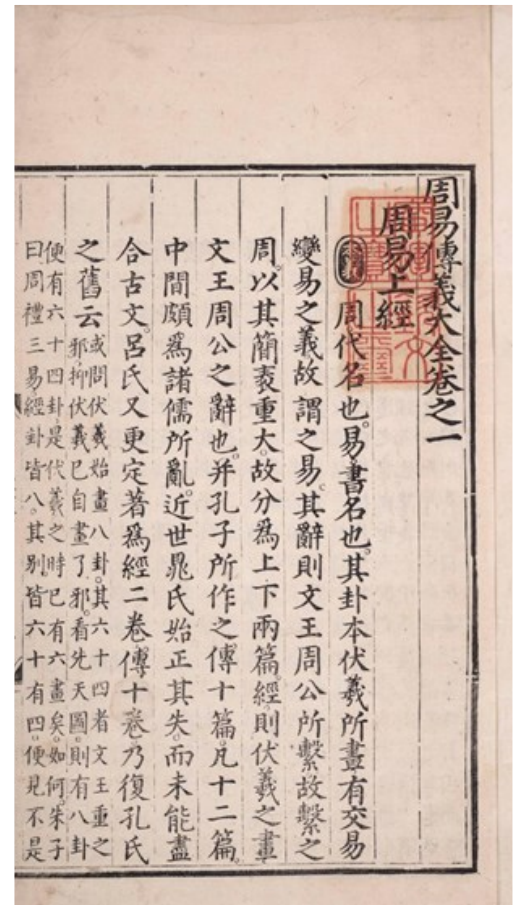 周易傳義大全卷之一
周易上經
周代名也。易書名也。其卦本伏羲所畫有交易
變易之義故謂之易。其辭則文王周公所繫故繫之
周。以其簡袠重大。故分爲上下兩篇。經則伏羲之畫
文王周公之辭也。并孔子所作之傳十篇。凡十二篇。
中間頗爲諸儒所亂。近世晁氏始正其失。而未能盡
合古文。呂氏又更定著爲經二卷傳十卷乃復孔氏
之舊云
或問伏羲始畫八卦。其六十四者文王重之
邪。抑伏羲已自畫了邪。看先天圖。則有八卦
便有六十四卦。是伏羲之時已有六畫矣。如何。朱子
曰周禮三易經卦皆八。其別。皆六十有四。便見不是